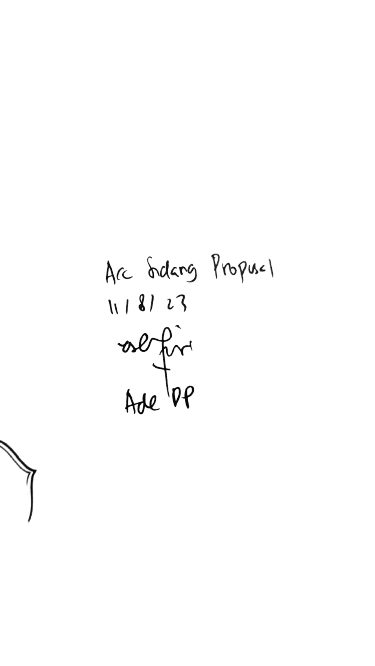 Acc Sidang Proposal
11/8/23
Ade DP